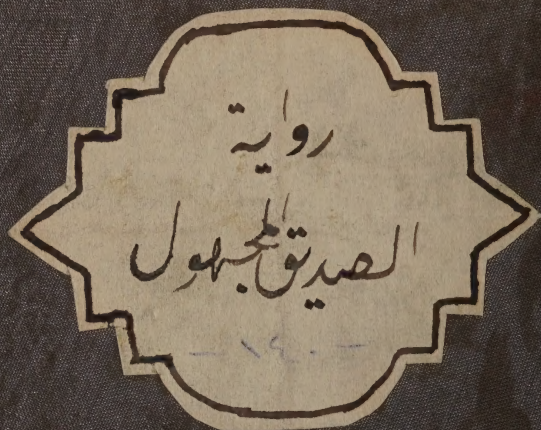 رواية
الصديق المجهول